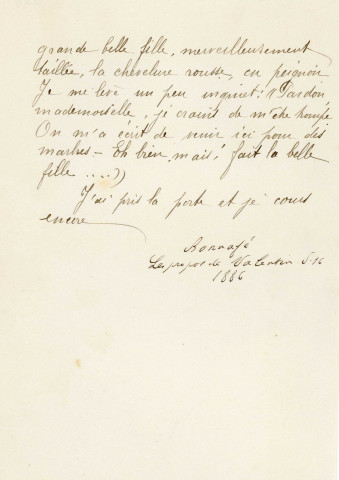 grande belle fille, merveilleusement
taillée, la chevelure rousse, en peignoir
Je me lève un peu inquiet: "Pardon,
mademoiselle, je crains de m'être trompé
On m'a écrit de venir ici pour des
marbres – Eh bien, mais! fait la belle
fille ....»
J'ai pris la porte et je cours
encore
Bonnafé
Les propos de Valentin
1886